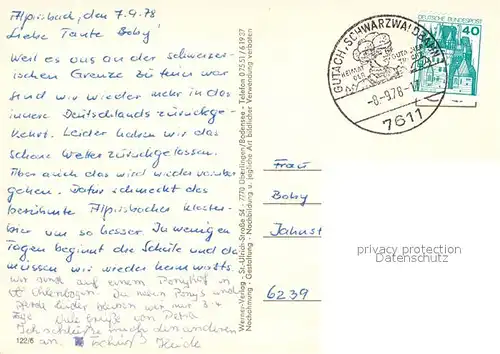 Alpirsbach, den 7.9.78
Liebe Tante Boby!
Weil es an der schweizer-
ischen Grenze zu teuer war
sind wir wieder mehr in das
innere Deutschlands zurückge-
kehrt. Leider haben wir das
schöne Wetter zurückgelassen.
Aber auch das wird wieder vorüber
gehen. Dafür schmeckt das
berühmte Alpirsbacher Kloster-
bier um so besser. In wenigen
Tagen beginnt die Schule und da
müssen wir wieder heimwärts.
Wir sind auf einem Ponyhof in
Da neuen Ponys und
Pferde leider bleiben wir nur 3-4
Tage Viele Grüße von Petra
Ich schließe mich den anderen
an. Heide
122/6
Werner-Verlag · St.-Ulrich-Straße 54 · 7770 Überlingen/Bodensee · Telefon 07551/61937
Nachahmung · Gestaltung · Nachbildung u. jegliche Art bildlicher Verwendung verboten
GUTACH (SCHWARZWALDBAHN)
HEIMAT
DER
-8-9.78-17
7611
DEUTSCHE BUNDESPOST
40
Frau
Boby
Jahnst
6239
privacy protection
Datenschutz